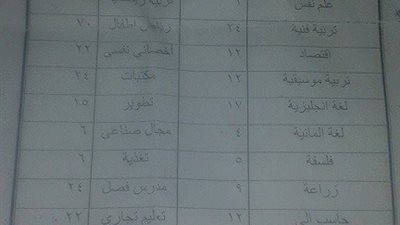 علم نفس ١ تربية
تربية فنية ٢٤ رياض أطفال ٧٠
اقتصاد ١٢ أخصائي نفسي ٢٢
تربية موسيقية ١٢ مكتبات ٢٤
لغة انجليزية ١٧ تطوير ١٥
لغة المانية ٠٤ مجال صناعي ٦
فلسفة ٥ تغذية ٦
زراعة ٩ مدرس فصل ٢٤
حاسب الي ١٢ تعليم تجاري ٢٢